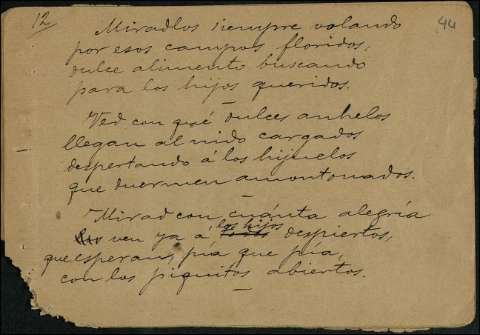 12
44
Miradlos siempre volando
por esos campos floridos,
dulce alimento buscando
para los hijos queridos.
Ved con qué dulces anhelos
llegan al nido cargados
despertando á los hijuelos
que duermen amontonados.
Mirad con cuánta alegría
los hijos
ven ya á despiertos,
que esperan, pía que pía,
con los piquitos abiertos.